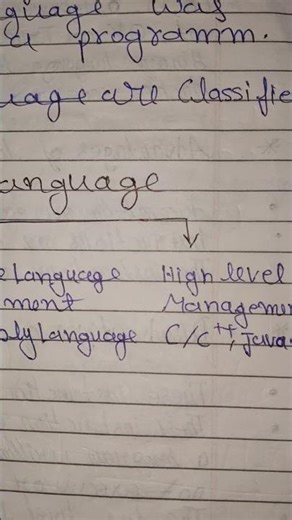 guage was
a programm.
uage are Classifie
anguage
e language High level
ment Managemen
bly language C/C++, Java